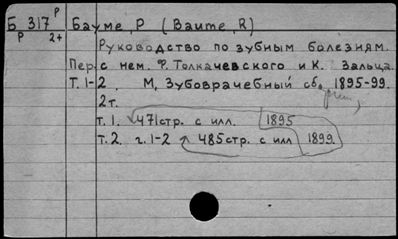 Б 317 Р Бауме, Р (Baume, R)
Р 2+
Руководство по зубным болезням.
Пер. с нем. Ф. Толкачевского и К. Зальца.
Т. 1-2. М, Зубоврачебный сб. 1895-99.
2т.
т. 1. 471 стр. с илл. 1895
т. 2. г. 1-2 485 стр. с илл 1899.